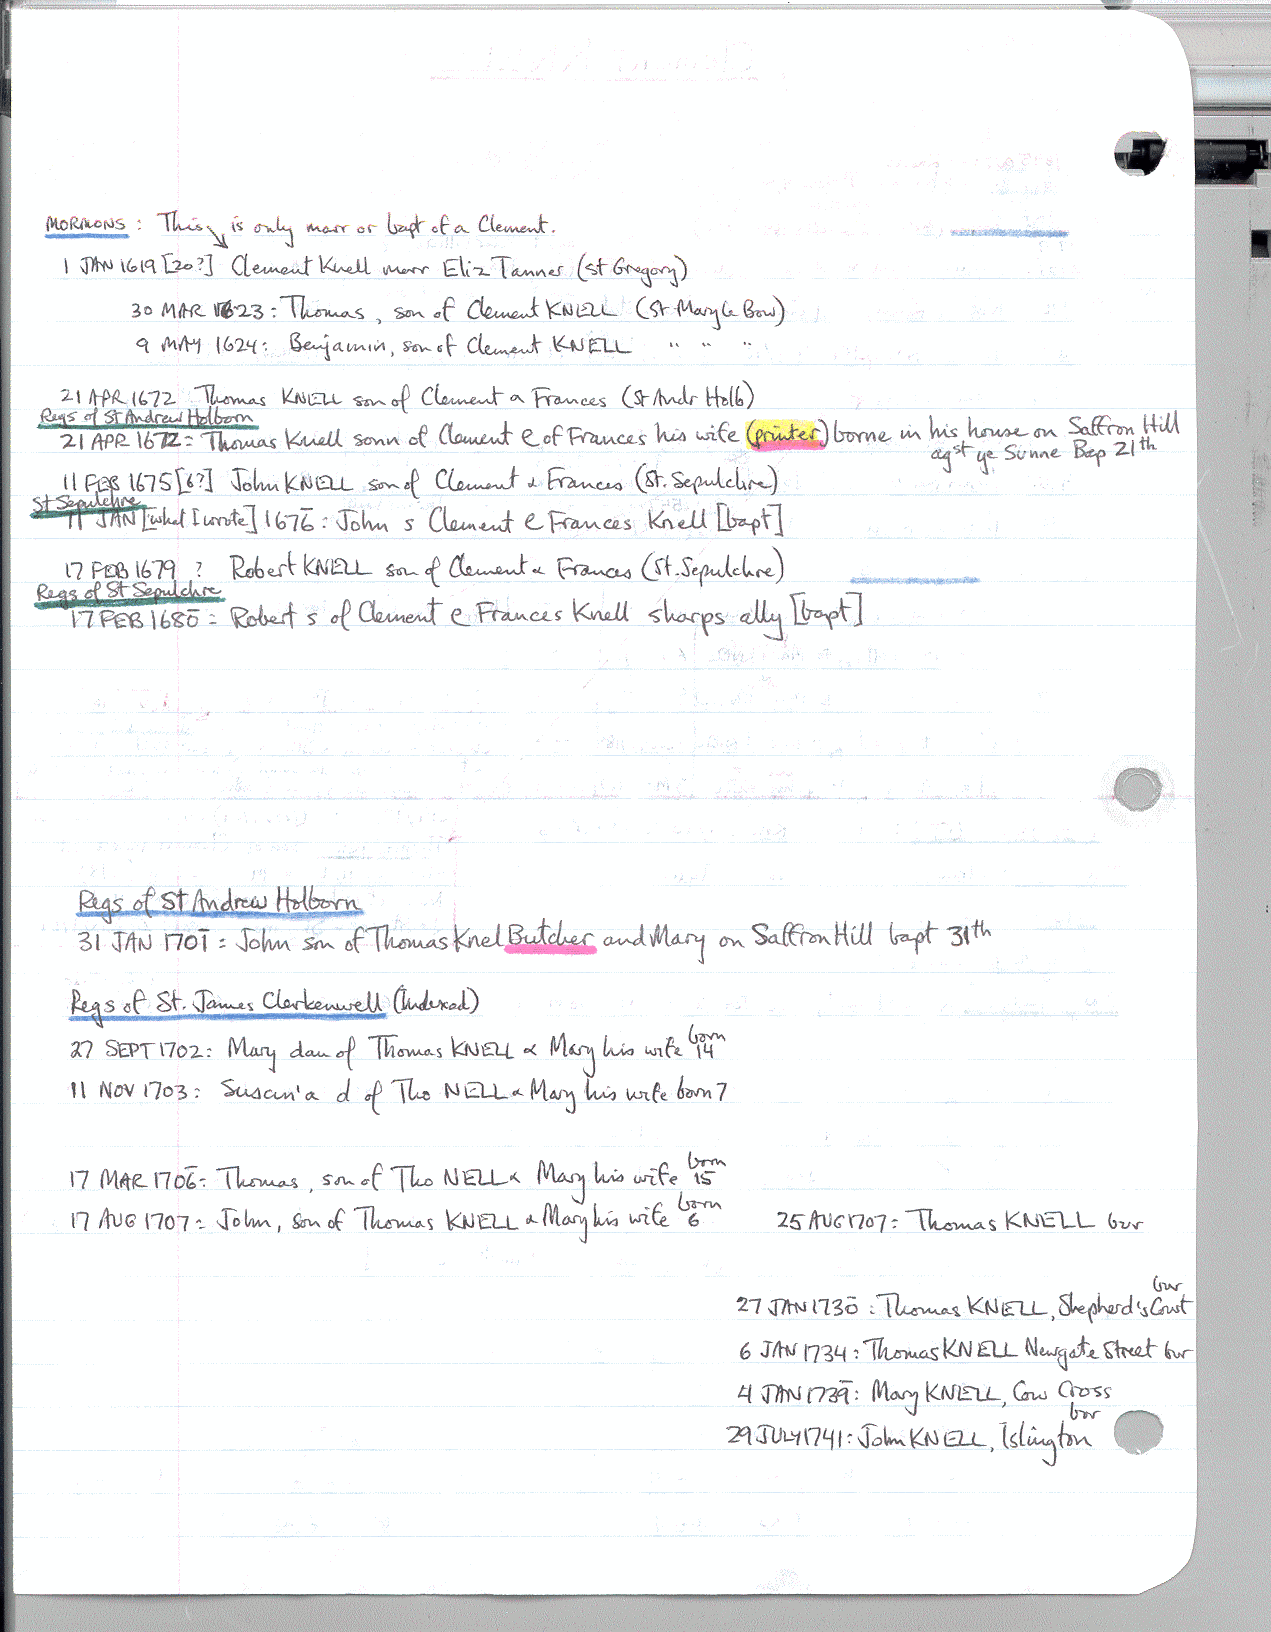 MORMONS : This is only marr or bapt of a Clement.
1 JAN 1619 [20?] Clement Knell marr Eliz Tanner (St Gregory)
30 MAR 1623 : Thomas, son of Clement KNELL (St Mary Le Bow)
9 MAY 1624: Benjamin, son of Clement KNELL " " "
21 APR 1672 Thomas KNELL son of Clement & Frances (St Andr Holb)
Regs of St Andrew Holborn
21 APR 1672 = Thomas Knell sonn of Clement & of Frances his wife (printer) borne in his house on Saffron Hill
agst ye Sunne Bap 21th
11 FEB 1675 [6?] John KNELL son of Clement & Frances (St. Sepulchre)
St Sepulchre
11 JAN [what I wrote] 1676 : John s Clement & Frances Knell [bapt]
17 FEB 1679 ? Robert KNELL son of Clement & Frances (St. Sepulchre)
Regs of St Sepulchre
17 FEB 1680 = Robert s of Clement & Frances Knell sharps ally [bapt]
Regs of St Andrew Holborn
31 JAN 1701 = John son of Thomas Knel Butcher and Mary on Saffron Hill bapt 31th
Regs of St. James Clerkenwell (Indexed)
27 SEPT 1702: Mary dau of Thomas KNELL & Mary his wife born 14
11 NOV 1703: Susan'a d of Tho NELL & Mary his wife born 7
17 MAR 1706= Thomas, son of Tho NELL & Mary his wife born 15
17 AUG 1707= John, son of Thomas KNELL & Mary his wife born 6
25 AUG 1707: Thomas KNELL bur
27 JAN 1730 : Thomas KNELL, Shepherd's Court bur
6 JAN 1734 : Thomas KNELL Newgate Street bur
4 JAN 1739: Mary KNELL, Cow Cross bur
29 JULY 1741: John KNELL, Islington